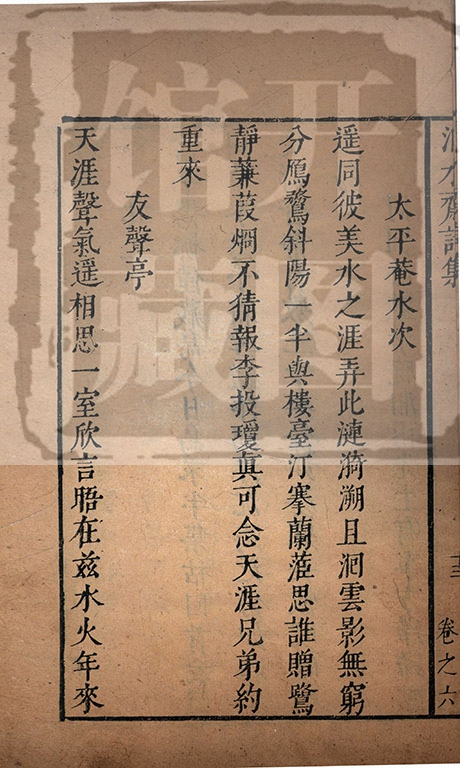 水齋詩集
卷之六
太平菴水次
遥同彼美水之涯弄此漣漪溯且洄雲影無窮
分鴈鶩斜陽一半與樓臺汀搴蘭茝思誰贈鷺
靜蒹葭烱不猜報李投瓊眞可念天涯兄弟約
重來
友聲亭
天涯聲氣遥相思一室欣言晤在兹水火年來